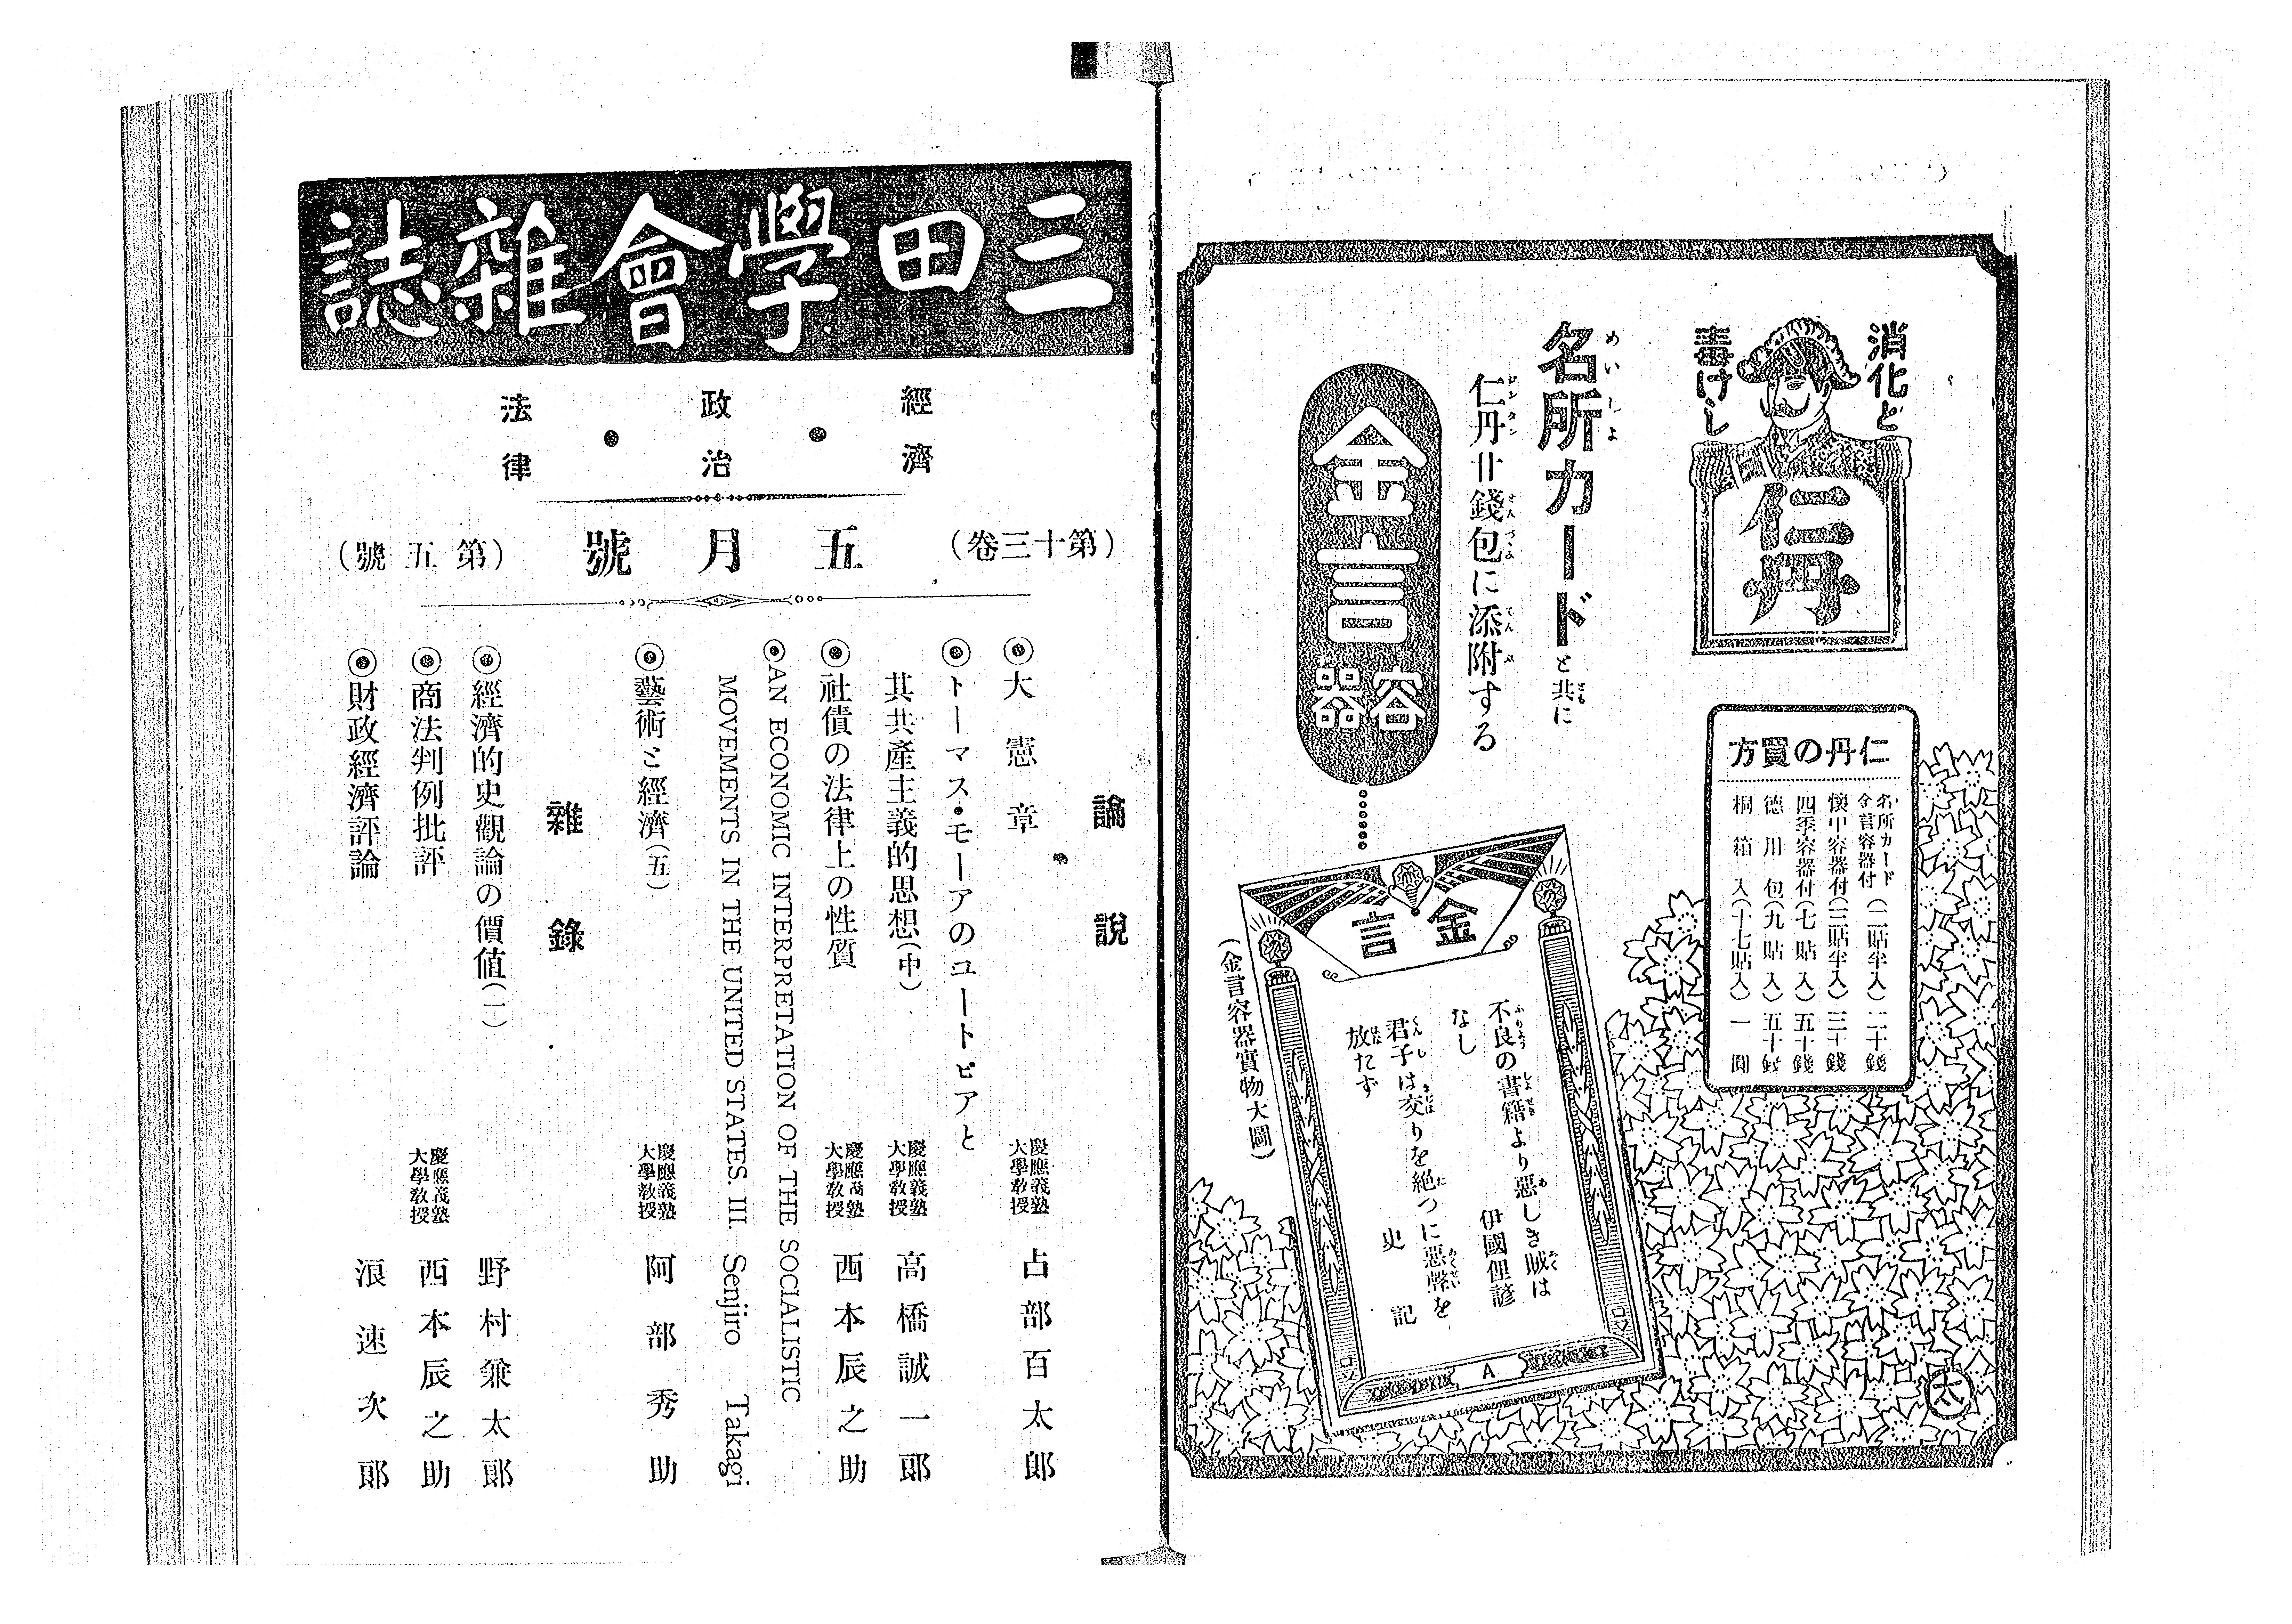 消化と
毒けし
仁丹
仁丹の買方
名所カード
金言容器付(二貼半入)二十錢
懷中容器付(三貼半入)三十錢
四季容器付(七貼入)五十錢
德川包(九貼入)五十錢
桐箱入(十七貼入)一圓
名所カードと共に
仁丹廿錢包に添附する
金言容器
金言
不良の書籍より惡しき賊は
なし
伊國俚諺
君子は交りを絶つに惡聲を
放たず
史記
A
(金言容器實物大圖)
太
三田學會雜誌
經濟・政治・法律
(第十三卷) 五月號 (第五號)
論說
◎大憲章 慶應義塾大學敎授 占部百太郎
◎トーマス・モーアのユートピアと
其共產主義的思想(中) 慶應義塾大學敎授 高橋誠一郎
◎社債の法律上の性質 慶應義塾大學敎授 西本辰之助
◎AN ECONOMIC INTERPRETATION OF THE SOCIALISTIC
MOVEMENTS IN THE UNITED STATES. III. Senjiro Takagi
◎藝術と經濟(五) 慶應義塾大學敎授 阿部秀助
雜錄
◎經濟的史觀論の價値(一) 野村兼太郎
◎商法判例批評 慶應義塾大學敎授 西本辰之助
◎財政經濟評論 浪速次郎